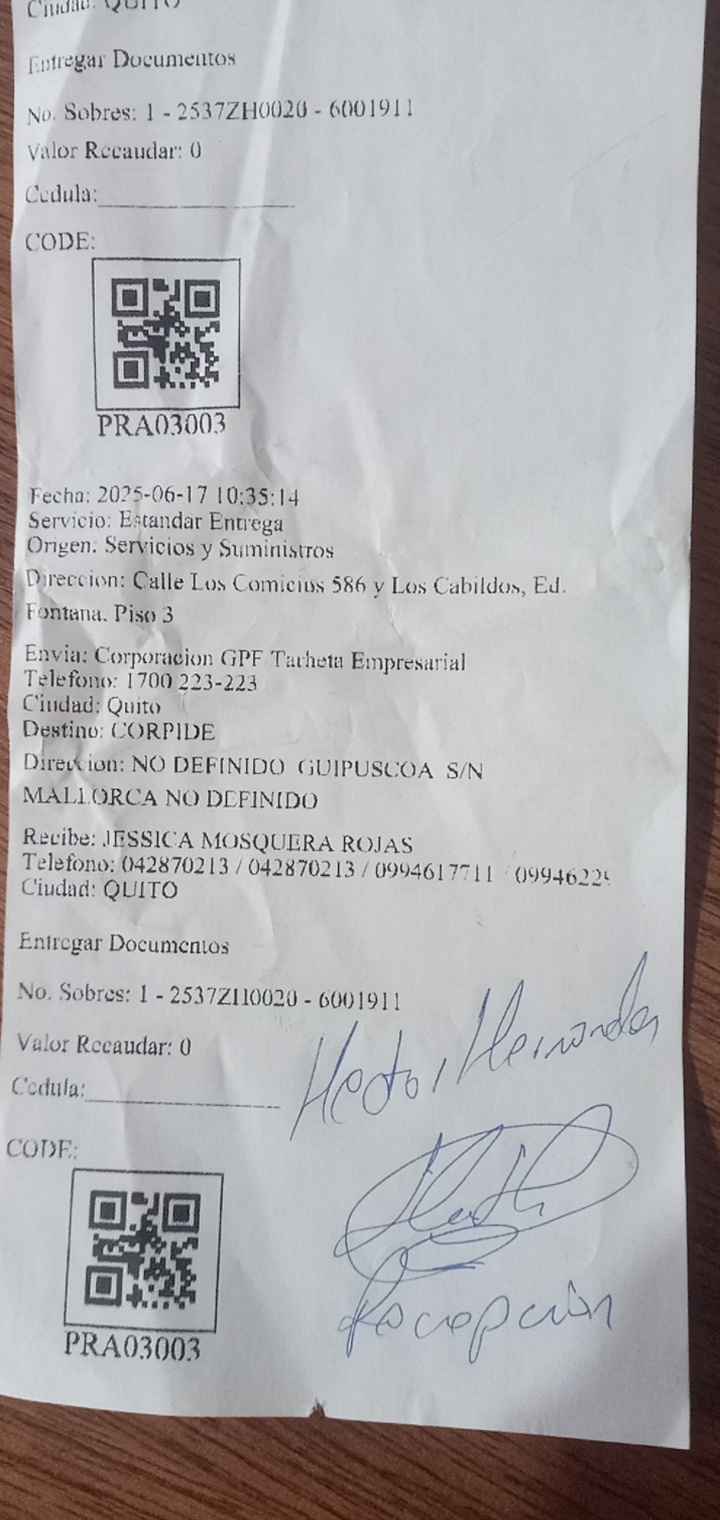 Ciudad: QUITO
Entregar Documentos
No. Sobres: 1 - 2537ZH0020 - 6001911
Valor Recaudar: 0
Cedula:
CODE:
PRA03003
Fecha: 2025-06-17 10:35:14
Servicio: Estandar Entrega
Origen: Servicios y Suministros
Direccion: Calle Los Comicios 586 y Los Cabildos, Ed.
Fontana. Piso 3
Envia: Corporacion GPF Tarheta Empresarial
Telefono: 1700 223-223
Ciudad: Quito
Destino: CORPIDE
Direccion: NO DEFINIDO GUIPUSCOA S/N
MALLORCA NO DEFINIDO
Recibe: JESSICA MOSQUERA ROJAS
Telefono: 042870213 / 042870213 / 0994617711 / 09946229
Ciudad: QUITO
Entregar Documentos
No. Sobres: 1 - 2537ZH0020 - 6001911
Valor Recaudar: 0
Hector Hernandez
Cedula:
CODE:
Recepción
PRA03003